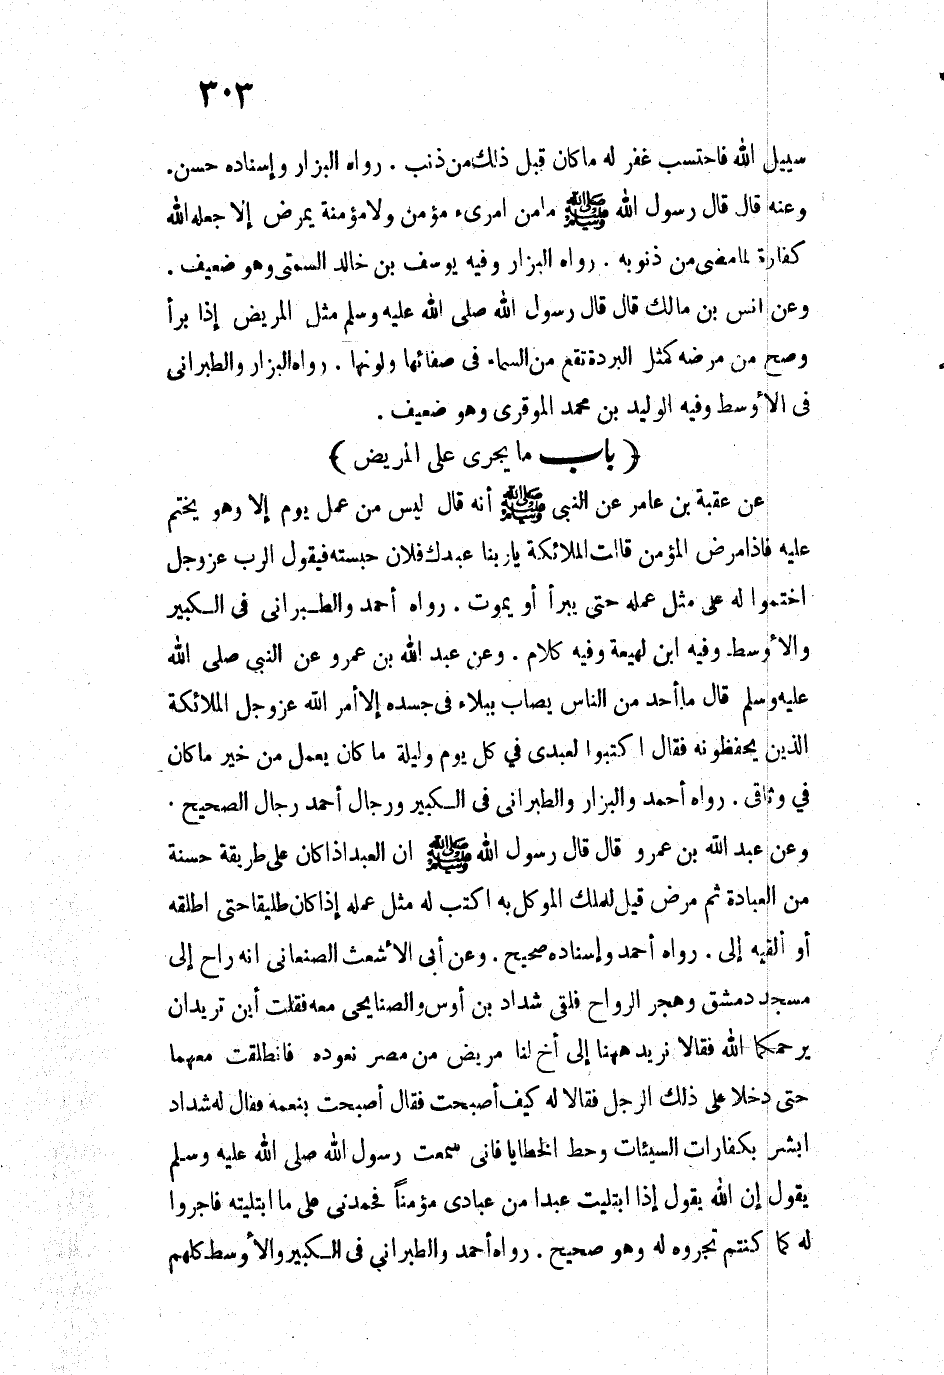 ٣٠٣
سبيل الله فاحتسب غفر له ماكان قبل ذلك من ذنب . رواه البزار وإسناده حسن .
وعنه قال قال رسول الله ﷺ مامن امرىء مؤمن ولامؤمنة يمرض إلا جعله الله
كفارة لمامضى من ذنوبه . رواه البزار وفيه يوسف بن خالد السمتى وهو ضعيف .
وعن انس بن مالك قال قال رسول الله صلى الله عليه وسلم مثل المريض إذا برأ
وصح من مرضه كمثل البردة تقع من السماء فى صفائها ولونها . رواه البزار والطبرانى
فى الأوسط وفيه الوليد بن محمد الموقرى وهو ضعيف .
﴿ باب ما يجرى على المريض ﴾
عن عقبة بن عامر عن النبى ﷺ أنه قال ليس من عمل يوم إلا وهو يختم
عليه فاذا مرض المؤمن قالت الملائكة ياربنا عبدك فلان حبسته فيقول الرب عزوجل
اختموا له على مثل عمله حتى يبرأ أو يموت . رواه أحمد والطبرانى فى الكبير
والأوسط وفيه ابن لهيعة وفيه كلام . وعن عبد الله بن عمرو عن النبي صلى الله
عليه وسلم قال ما أحد من الناس يصاب ببلاء فى جسده إلا أمر الله عزوجل الملائكة
الذين يحفظونه فقال اكتبوا لعبدى في كل يوم وليلة ماكان يعمل من خير ماكان
في وثاقى . رواه أحمد والبزار والطبرانى فى الكبير ورجال أحمد رجال الصحيح .
وعن عبد الله بن عمرو قال قال رسول الله ﷺ ان العبد اذا كان على طريقة حسنة
من العبادة ثم مرض قيل للملك الموكل به اكتب له مثل عمله إذا كان طليقا حتى اطلقه
أو ألقيه إلى . رواه أحمد وإسناده صحيح . وعن أبى الأشعث الصنعانى انه راح إلى
مسجد دمشق وهجر الرواح فلقى شداد بن أوس والصنابحى معه فقلت أين تريدان
يرحمكما الله فقالا نريد ههنا إلى أخ لنا مريض من مصر نعوده فانطلقت معهما
حتى دخلا على ذلك الرجل فقالا له كيف أصبحت فقال أصبحت بنعمه فقال له شداد
ابشر بكفارات السيئات وحط الخطايا فانى سمعت رسول الله صلى الله عليه وسلم
يقول إن الله يقول إذا ابتليت عبدا من عبادى مؤمناً فحمدنى على ما ابتليته فاجروا
له كما كنتم تجروه له وهو صحيح . رواه أحمد والطبراني فى الكبير والأوسط كلهم